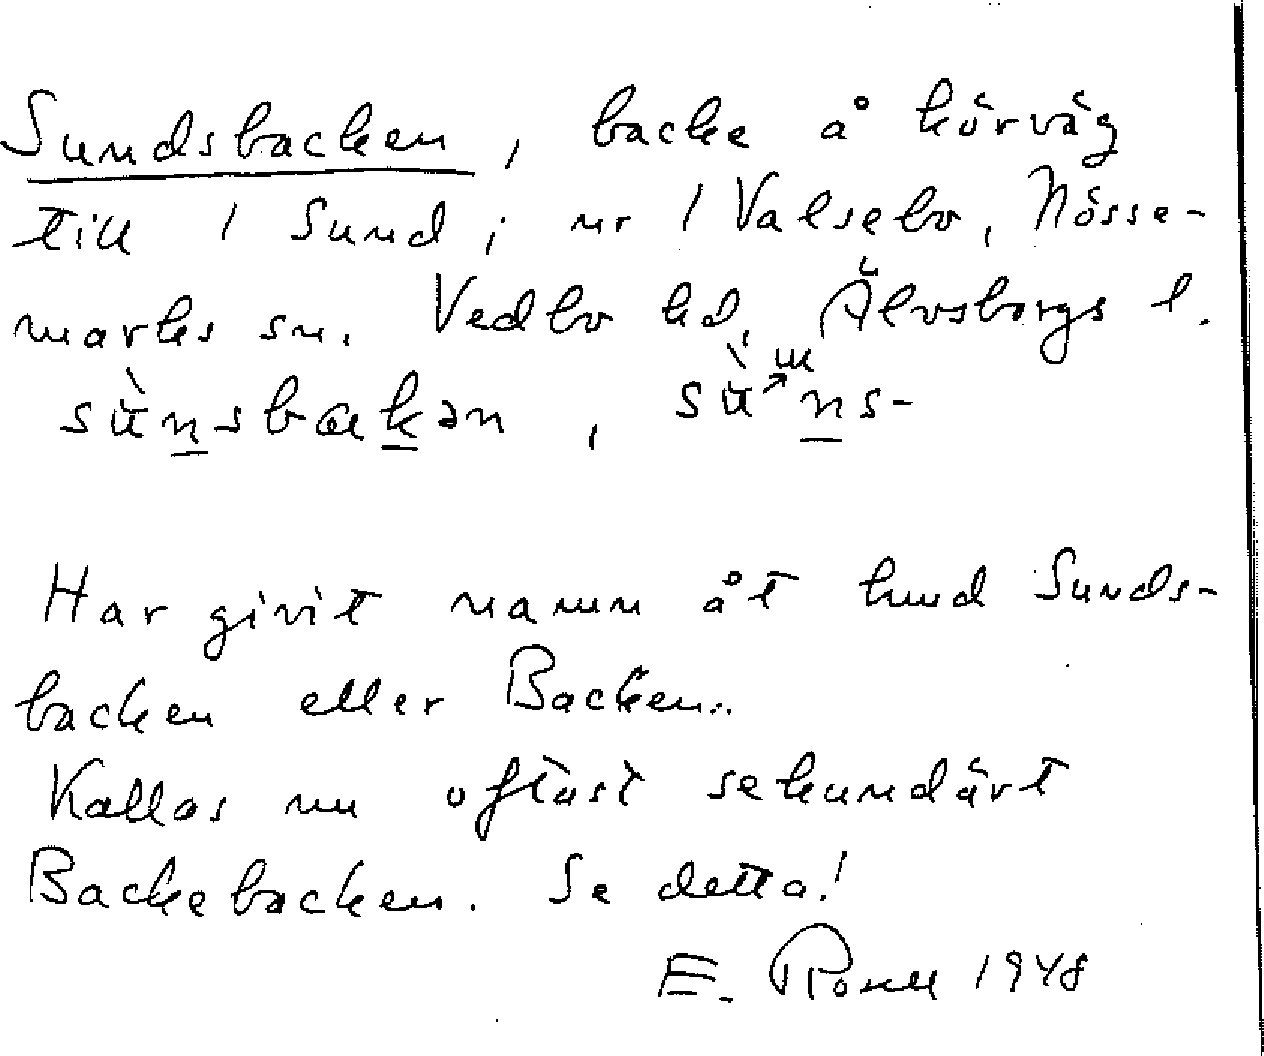 Sundsbacken, backe å körväg
till 1 Sund i nr 1 Valsebo, Nösse-
marks sn. Vedbo hd, Älvsborgs l.
sùnsbakən, sù ns-
Har givit namn åt hmd Sunds-
backen eller Backen.
Kallas nu oftast sekundärt
Backebacken. Se detta!
E. Rosell 1948